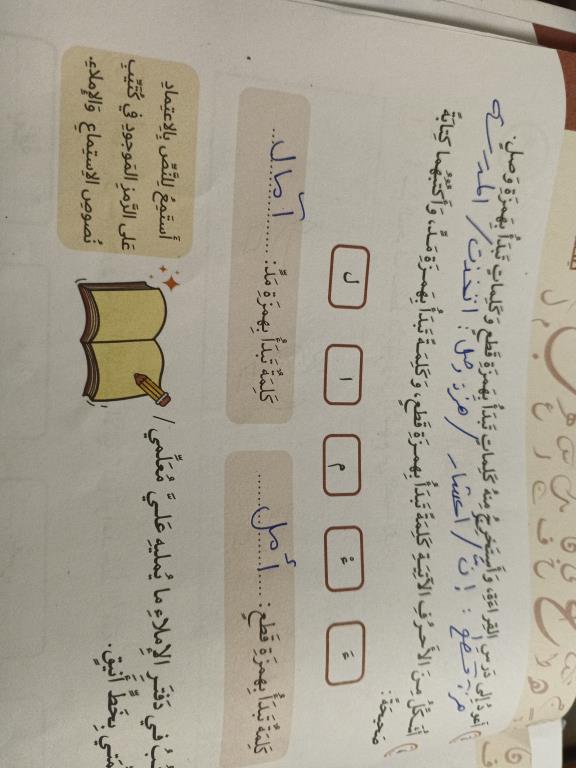 أعود إلى درس القراءة، وأستخرج منه كلمات تبدأ بهمزة قطع وكلمات تبدأ بهمزة وصل.
همزة وصل: اتخذت / المدرسة
أشكل من الأحرف الآتية كلمة تبدأ بهمزة قطع، وكلمة تبدأ بهمزة مد، وأكتبهما كتابة
صحيحة:
ءَ
ءْ
م
ا
ل
كلمة تبدأ بهمزة قطع: أمل
كلمة تبدأ بهمزة مد: آمال
في دفتر الإملاء ما يمليه علي معلمي /
بخط أنيق.
أستمع للنص بالاعتماد
على الرمز الموجود في كتيب
نصوص الاستماع والإملاء.